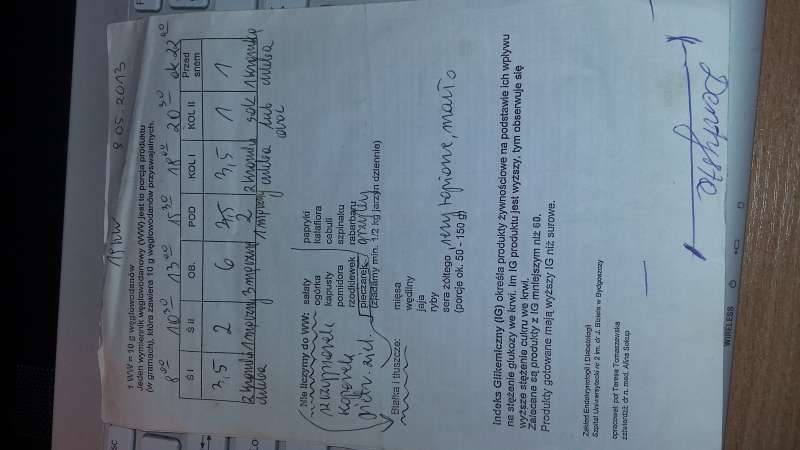 19 WW
8.05.2013
1 WW = 10 g węglowodanów
Jeden wymiennik węglowodanowy (WW) jest to porcja produktu
(w gramach), która zawiera 10 g węglowodanów przyswajalnych.
8 00 10 30 13 00 15 30 18 00 20 30 ok. 22 00
Ś I Ś II OB. POD KOL I KOL II Przed snem
3,5 2 6 3,5 3,5 1 1
2 kromki chleba 1 2 kromki chleba sok lub 1 kromka chleba
Nie liczymy do WW:
sałaty papryki
ogórka kalafiora
kapusty cebuli
pomidora szpinaku
rzodkiewek rabarbaru
pieczarek grzyby
(zjadamy min. 1/2 kg jarzyn dziennie)
koperek
Białka i tłuszcze:
mięsa
wędliny
jaja
ryby
sera żółtego, sery topione, masło
(porcje ok. 50 - 150 g)
Indeks Glikemiczny (IG) określa produkty żywnościowe na podstawie ich wpływu
na stężenie glukozy we krwi. Im IG produktu jest wyższy, tym obserwuje się
wyższe stężenie cukru we krwi.
Zalecane są produkty z IG mniejszym niż 60.
Produkty gotowane mają wyższy IG niż surowe.
Zakład Endokrynologii i Diabetologii
Szpital Uniwersytecki nr 2 im. dr J. Biziela w Bydgoszczy
opracował: por Teresa Tomaszewska
zatwierdził: dr n. med. Alina Sokup
Dentysta
WIRELESS